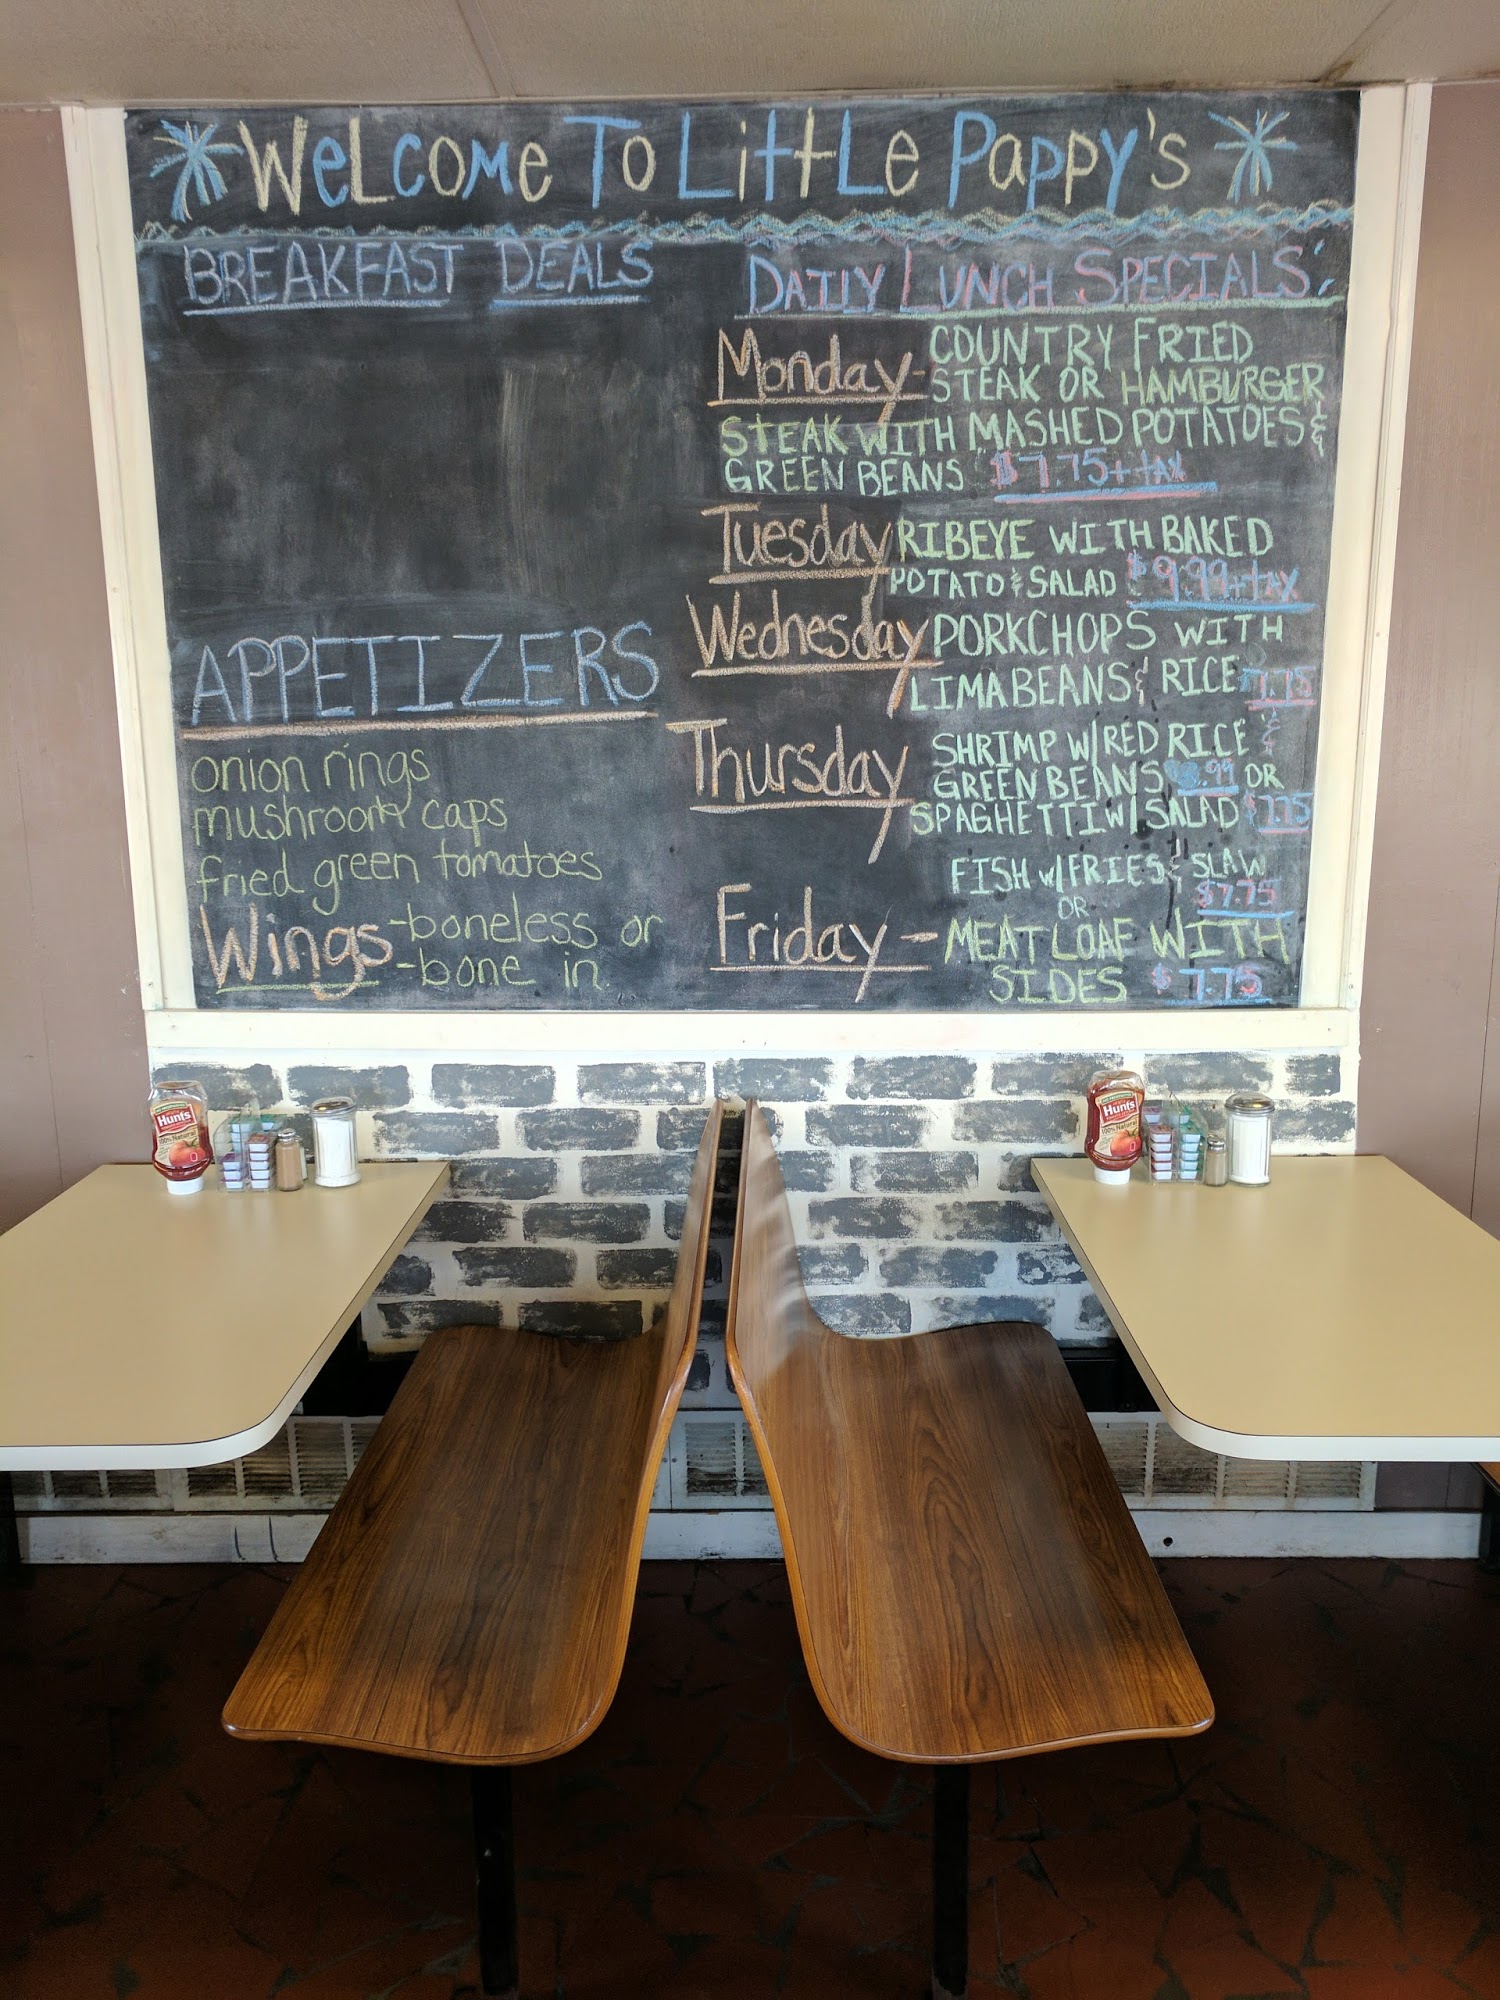 WeLcoMe To LittLe Pappy's
BREAKFAST DEALS
APPETIZERS
onion rings
mushroom caps
fried green tomatoes
Wings -boneless or
-bone in
DAILY LUNCH SPECIALS:
Monday- COUNTRY FRIED
STEAK OR HAMBURGER
STEAK WITH MASHED POTATOES &
GREEN BEANS $7.75 + tax
Tuesday RIBEYE WITH BAKED
POTATO & SALAD $9.99 + tax
Wednesday PORKCHOPS WITH
LIMA BEANS & RICE 7.75
Thursday SHRIMP W/ RED RICE &
GREEN BEANS OR
SPAGHETTI W/ SALAD $7.75
FISH w/ FRIES & SLAW
$7.75
OR
Friday - MEAT LOAF WITH
SIDES $7.75
Hunt's
100% Natural
Hunt's
100% Natural